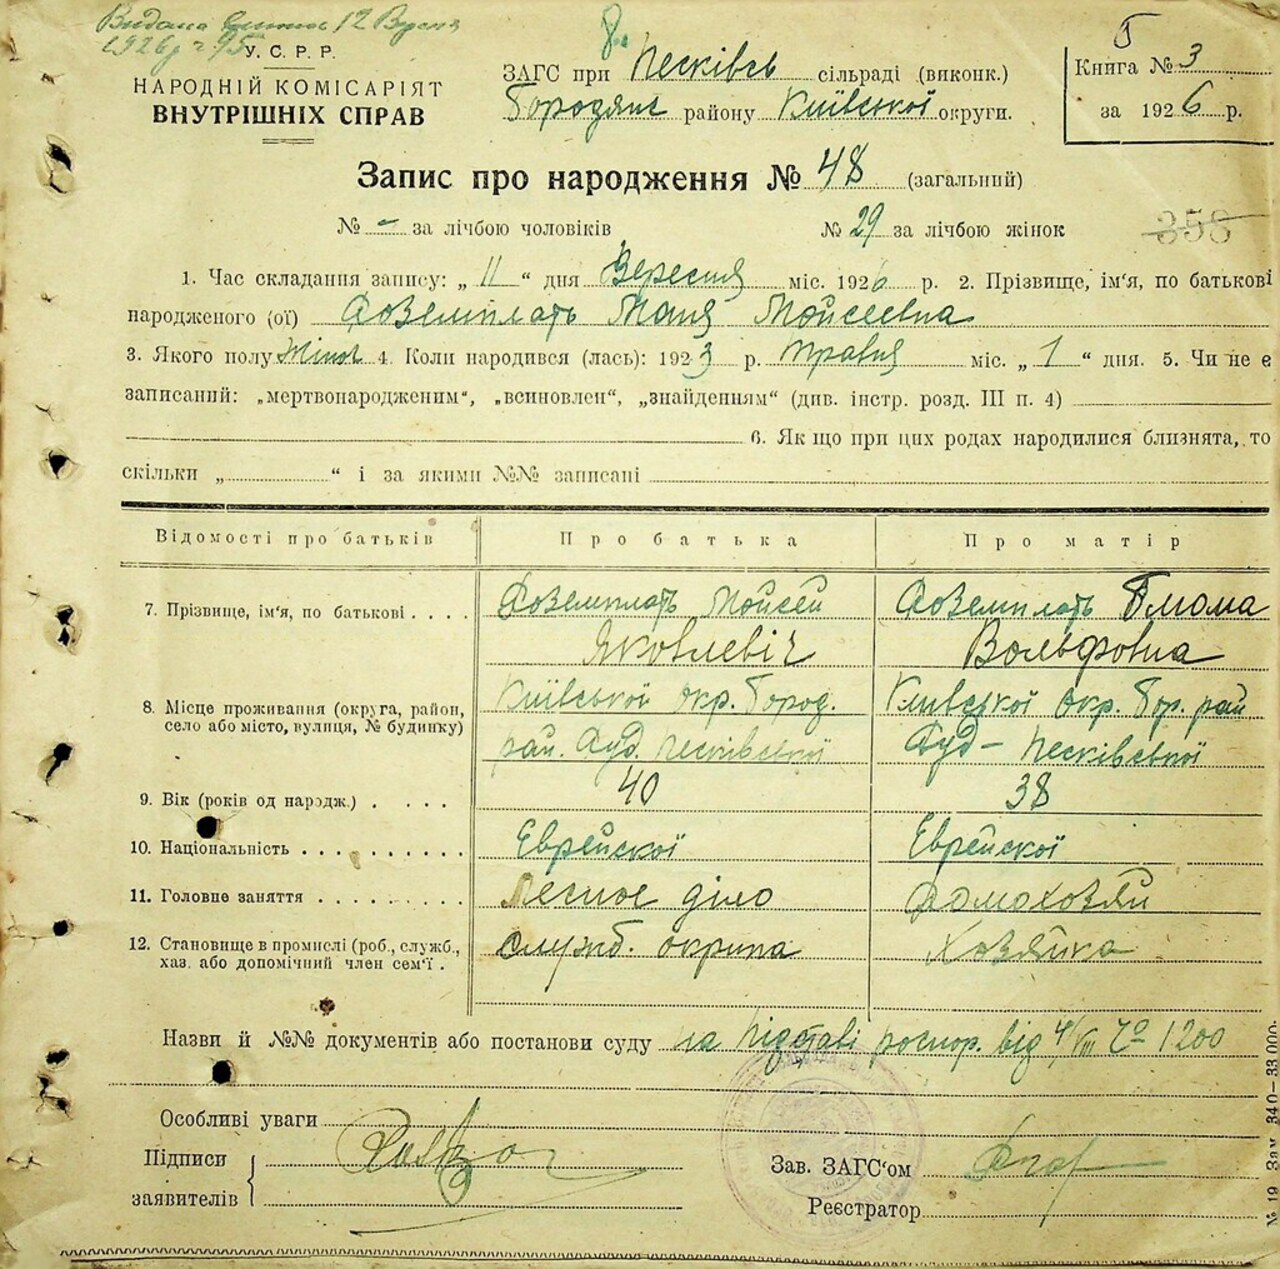 Видана 12
1926 р. № 95
У. С. Р. Р.
НАРОДНІЙ КОМІСАРІЯТ
ВНУТРІШНІХ СПРАВ
ЗАГС при Песківсь сільраді (виконк.)
Бородянс району Київської округи.
Книга № 3
за 1926 р.
Запис про народження № 48 (загальний)
№ - за лічбою чоловіків № 29 за лічбою жінок
358
1. Час складання запису: „ 11 “ дня Вересня міс. 1926 р. 2. Прізвище, ім'я, по батькові
народженого (ої) Маня Мойсеевна
3. Якого полу Жіноч 4. Коли народився (лась): 1923 р. Травня міс. „ 1 “ дня. 5. Чи не є
записаний: „мертвонародженим“, „всиновлен“, „знайденням“ (див. інстр. розд. III п. 4)
6. Як що при цих родах народилися близнята, то
скільки „ “ і за якими №№ записані
Відомості про батьків Про батька Про матір
7. Прізвище, ім'я, по батькові . . . . Мойсей
Яковлевіч Вольфовна
8. Місце проживання (округа, район,
село або місто, вулиця, № будинку) Київської окр. Бород. Київської окр. Бор. рай
рай. Буд. Песківської Буд - Песківської
9. Вік (років од народж.) . . . . 40 38
10. Національність . . . . . . . . . . Еврейскої Еврейскої
11. Головне заняття . . . . . . . . . Лесное діло Домохозяй
12. Становище в промислі (роб., служб.,
хаз. або допомічний член сем'ї . служб. Хозяйка
Назви й №№ документів або постанови суду на підставі роспор. від 4/VIII № 1200
Особливі уваги
Підписи
заявителів
Зав. ЗАГС'ом
Реєстратор
№ 19 Зам. 340–33 000.